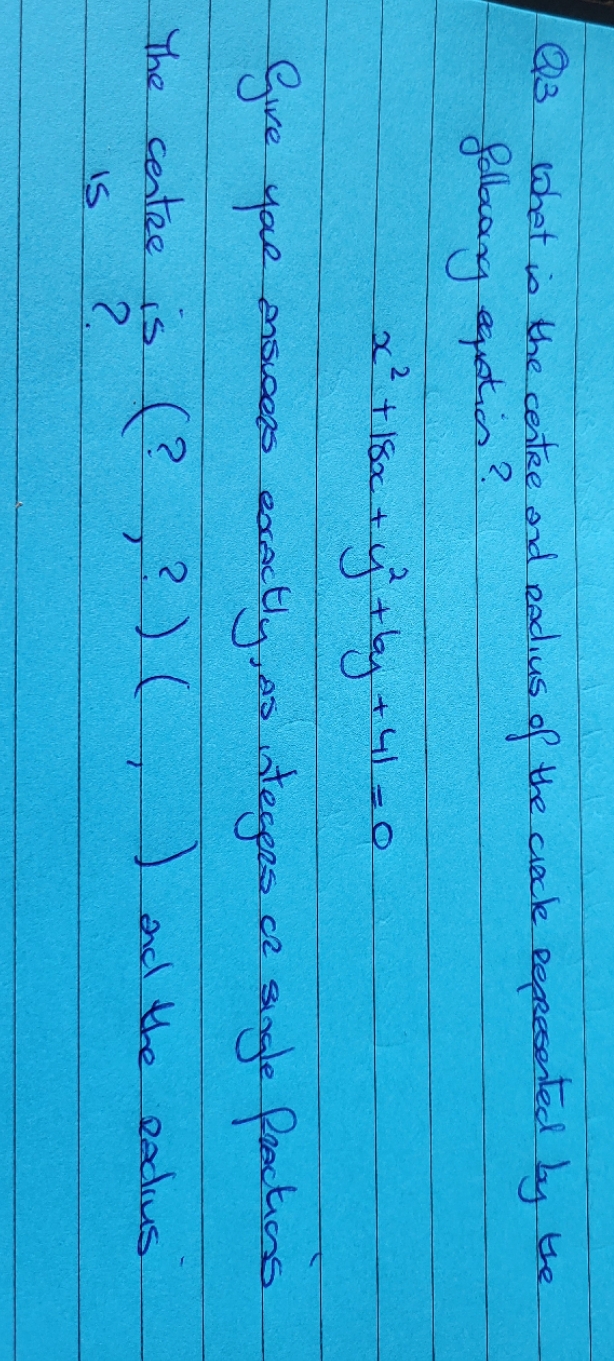 Q3 What is the centre and radius of the circle represented by the
following equation?
x² + 18x + y² + 6y + 41 = 0
Give your answers exactly, as integers or single fractions
The centre is (? , ?) ( , ) and the radius
is ?